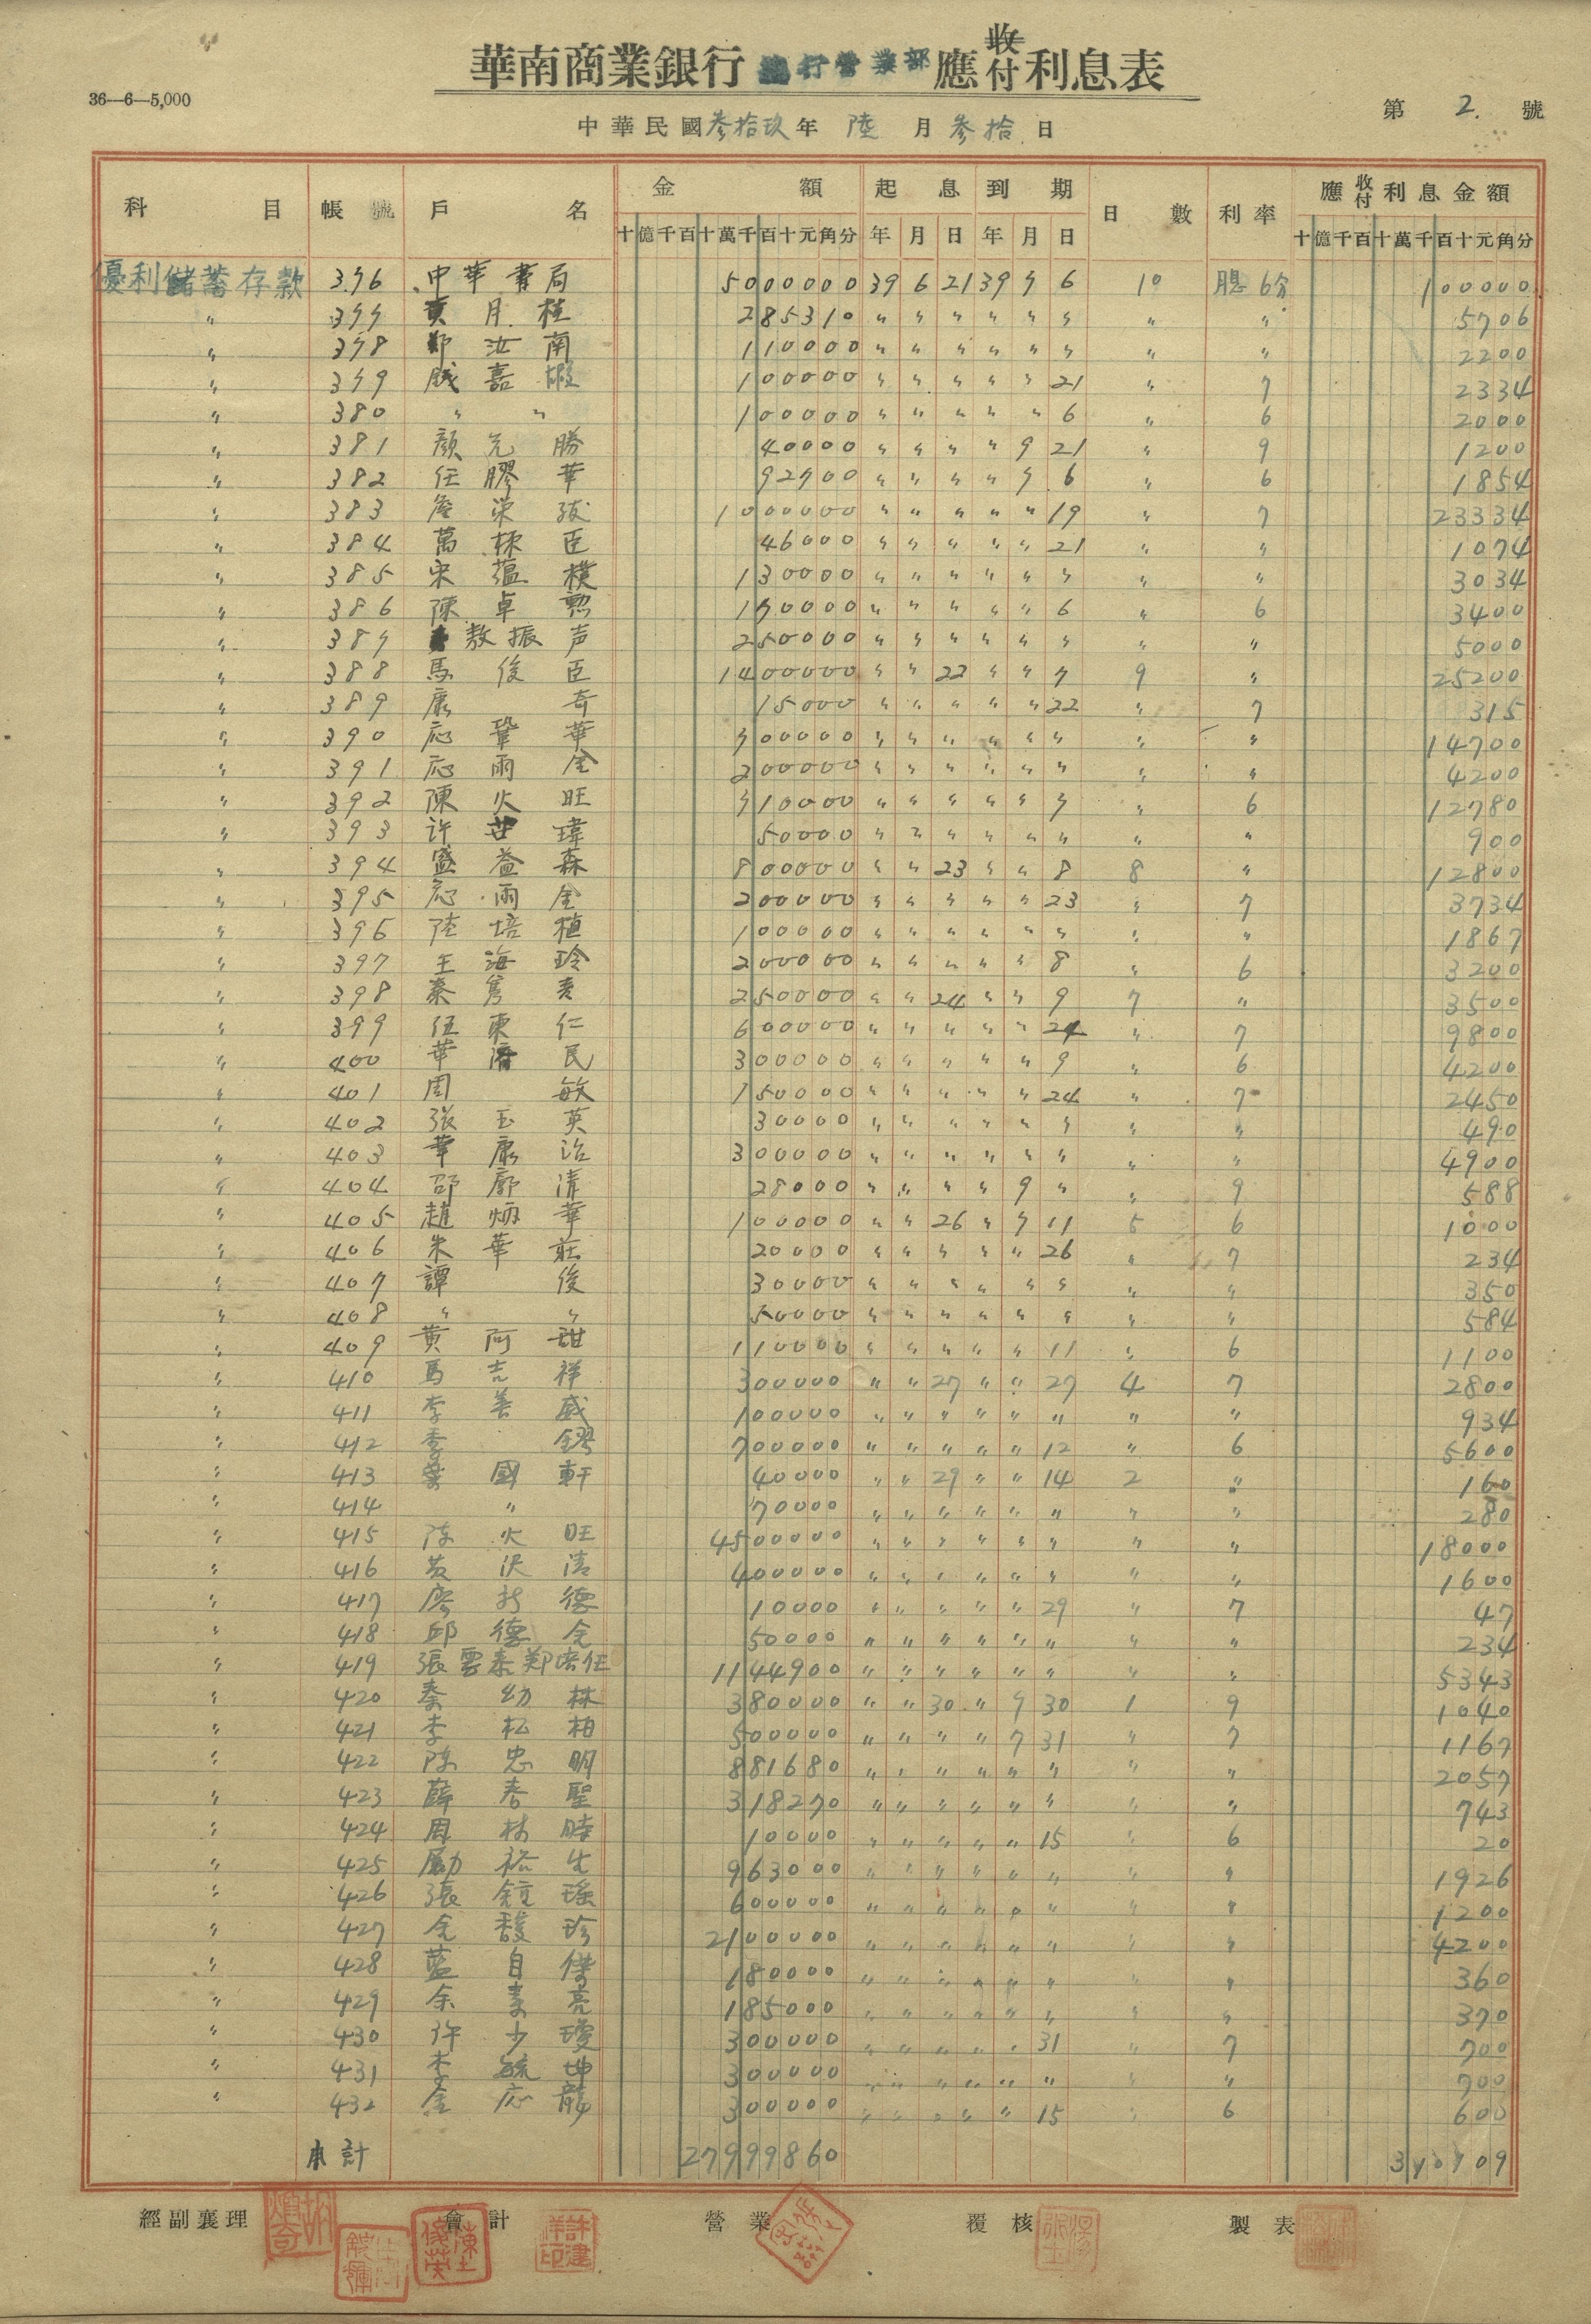 36—6—5,000
華南商業銀行 總行營業部 應收付利息表
中華民國叁拾玖年 陸 月 叁拾 日
第 2. 號
科目 帳號 戶名 金額 起息 到期 日數 利率 應收付利息金額
十億千百十萬千百十元角分 年月日 年月日 十億千百十萬千百十元角分
優利儲蓄存款 376 中華書局 5000000 39 6 21 39 7 6 10 月息6分 100000
〃 377 黃月桂 285310 〃 〃 〃 〃 〃 〃 〃 〃 5706
〃 378 鄭汝南 110000 〃 〃 〃 〃 〃 〃 〃 〃 2200
〃 379 錢嘉 100000 〃 〃 〃 〃 〃 21 〃 7 2334
〃 380 〃 〃 100000 〃 〃 〃 〃 〃 6 〃 6 2000
〃 381 顏先勝 40000 〃 〃 〃 〃 9 21 〃 9 1200
〃 382 任膠華 92700 〃 〃 〃 〃 7 6 〃 6 1854
〃 383 詹榮 1000000 〃 〃 〃 〃 〃 19 〃 7 23334
〃 384 萬棟臣 46000 〃 〃 〃 〃 〃 21 〃 〃 1074
〃 385 宋蘊樸 130000 〃 〃 〃 〃 〃 〃 〃 〃 3034
〃 386 陳卓 170000 〃 〃 〃 〃 〃 6 〃 6 3400
〃 387 敖振声 250000 〃 〃 〃 〃 〃 〃 〃 〃 5000
〃 388 馬俊臣 1400000 〃 〃 22 〃 〃 7 9 〃 25200
〃 389 康奇 15000 〃 〃 〃 〃 〃 22 〃 7 315
〃 390 应鞏華 700000 〃 〃 〃 〃 〃 〃 〃 〃 14700
〃 391 应雨金 200000 〃 〃 〃 〃 〃 〃 〃 〃 4200
〃 392 陳火旺 710000 〃 〃 〃 〃 〃 7 〃 6 12780
〃 393 许世瑋 50000 〃 〃 〃 〃 〃 〃 〃 〃 900
〃 394 盛益森 800000 〃 〃 23 〃 〃 8 8 〃 12800
〃 395 应雨金 200000 〃 〃 〃 〃 〃 23 〃 7 3734
〃 396 陸培植 100000 〃 〃 〃 〃 〃 〃 〃 〃 1867
〃 397 王海玲 200000 〃 〃 〃 〃 〃 8 〃 6 3200
〃 398 秦 250000 〃 〃 24 〃 〃 9 7 〃 3500
〃 399 伍東仁 600000 〃 〃 〃 〃 〃 24 〃 7 9800
〃 400 華濟民 300000 〃 〃 〃 〃 〃 9 〃 6 4200
〃 401 周敏 150000 〃 〃 〃 〃 〃 24 〃 7 2450
〃 402 張玉英 30000 〃 〃 〃 〃 〃 〃 〃 〃 490
〃 403 華康治 300000 〃 〃 〃 〃 〃 〃 〃 〃 4900
〃 404 邵廓清 28000 〃 〃 〃 〃 9 〃 〃 9 588
〃 405 趙炳華 100000 〃 〃 26 〃 7 11 5 6 1000
〃 406 朱華莊 20000 〃 〃 〃 〃 〃 26 〃 7 234
〃 407 譚俊 30000 〃 〃 〃 〃 〃 〃 〃 〃 350
〃 408 〃 〃 50000 〃 〃 〃 〃 〃 〃 〃 〃 584
〃 409 黃阿甜 110000 〃 〃 〃 〃 〃 11 〃 6 1100
〃 410 馬吉祥 300000 〃 〃 27 〃 〃 27 4 7 2800
〃 411 李善威 100000 〃 〃 〃 〃 〃 〃 〃 〃 934
〃 412 李鏐 700000 〃 〃 〃 〃 〃 12 〃 6 5600
〃 413 葉國軒 40000 〃 〃 29 〃 〃 14 2 〃 160
〃 414 〃 70000 〃 〃 〃 〃 〃 〃 〃 〃 280
〃 415 陈火旺 4500000 〃 〃 〃 〃 〃 〃 〃 〃 18000
〃 416 黃沢清 400000 〃 〃 〃 〃 〃 〃 〃 〃 1600
〃 417 廖 德 10000 〃 〃 〃 〃 〃 29 〃 7 47
〃 418 邱德金 50000 〃 〃 〃 〃 〃 〃 〃 〃 234
〃 419 張雲泰鄭培任 1144900 〃 〃 〃 〃 〃 〃 〃 〃 5343
〃 420 秦幼林 380000 〃 〃 30 〃 9 30 1 9 1040
〃 421 李松柏 500000 〃 〃 〃 〃 7 31 〃 7 1167
〃 422 陈忠明 881680 〃 〃 〃 〃 〃 〃 〃 〃 2057
〃 423 薛春聖 318270 〃 〃 〃 〃 〃 〃 〃 〃 743
〃 424 周林 10000 〃 〃 〃 〃 〃 15 〃 6 20
〃 425 勵裕生 963000 〃 〃 〃 〃 〃 〃 〃 〃 1926
〃 426 張鏡瑤 600000 〃 〃 〃 〃 〃 〃 〃 〃 1200
〃 427 金馥珍 2100000 〃 〃 〃 〃 〃 〃 〃 〃 4200
〃 428 藍自傑 180000 〃 〃 〃 〃 〃 〃 〃 〃 360
〃 429 余素亮 185000 〃 〃 〃 〃 〃 〃 〃 〃 370
〃 430 许少瓊 300000 〃 〃 〃 〃 〃 31 〃 7 700
〃 431 李毓坤 300000 〃 〃 〃 〃 〃 〃 〃 〃 700
〃 432 金应龍 300000 〃 〃 〃 〃 〃 15 〃 6 600
本計 27999860 340709
經副襄理 會計 營業 覆核 製表